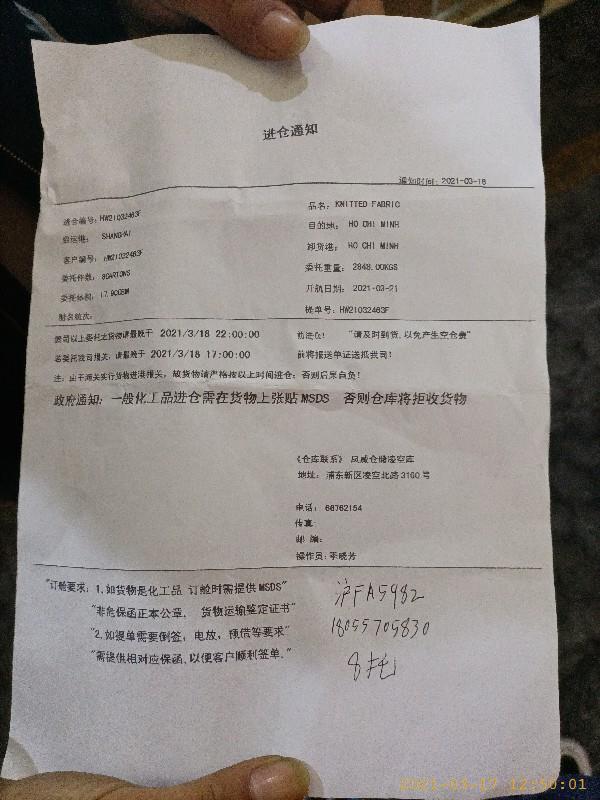 进仓通知
通知时间：2021-03-16
进仓编号：HW21032463F
品名：KNITTED FABRIC
启运港： SHANGHAI
目的地： HO CHI MINH
客户编号：HW21032463F
卸货港： HO CHI MINH
委托件数：8CARTONS
委托重量： 2848.00KGS
委托体积：17.90CBM
开航日期： 2021-03-21
船名航次：
提单号：HW21032463F
贵司以上委托之货物请最晚于 2021/3/18 22:00:00 前进仓! "请及时到货,以免产生空仓费"
若委托我司报关，请最晚于 2021/3/18 17:00:00 前将报送单证送抵我司!
注：由于海关实行货物进港报关，故货物请严格按以上时间进仓，否则后果自负!
政府通知：一般化工品进仓需在货物上张贴MSDS 否则仓库将拒收货物
《仓库联系》 凤威仓储凌空库
地址： 浦东新区凌空北路3160号
电话： 66762154
传真:
邮 编:
操作员:季晓芳
"订舱要求：1.如货物是化工品 订舱时需提供MSDS"
"非危保函正本公章， 货物运输鉴定证书"
"2.如提单需要倒签，电放，预借等要求"
"需提供相对应保函,以便客户顺利签单."
沪FA5982
18055705830
8托
2021-03-17 12:50:01